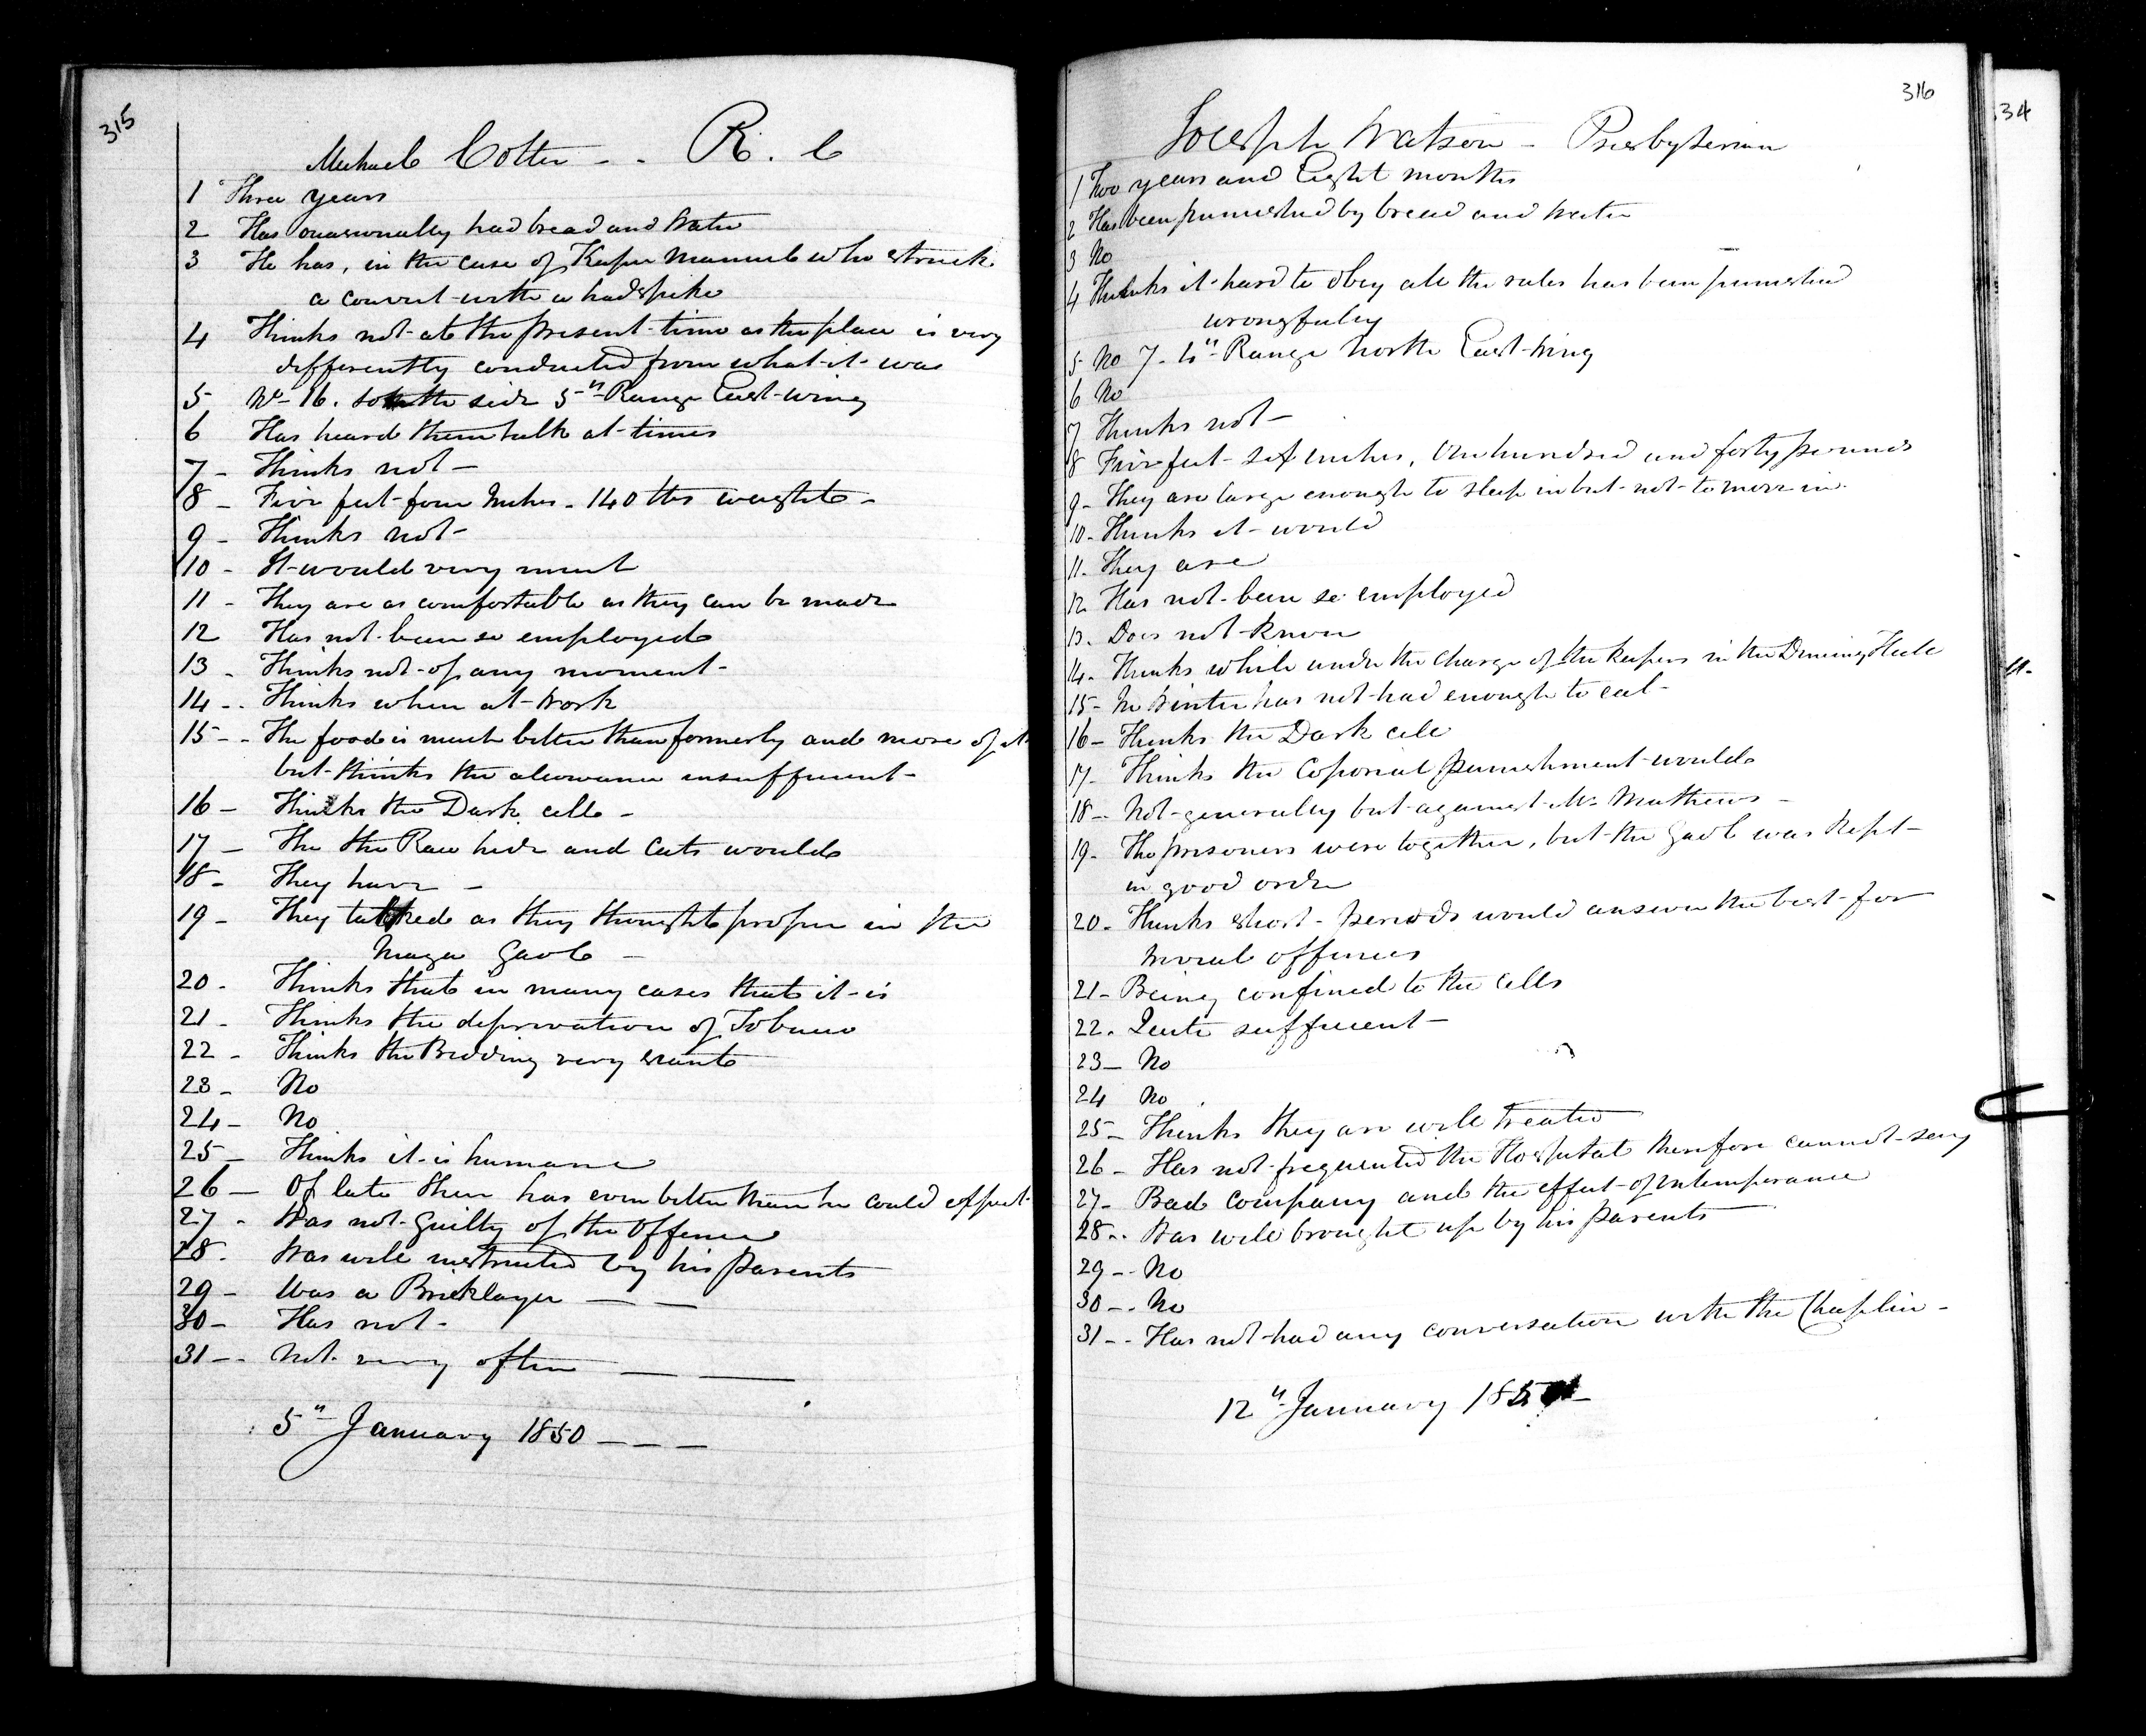 315
Michael Cotter - - R. C
1 Three years
2 Has occasionally had bread and Water
3 He has, in the case of Keeper Manuel who struck
a convict with a hadspike
4 Thinks not at the present time as the place is very
differently conducted from what it was
5 No 16. South side 5th Range East wing
6 Has heard them talk at times
7 - Thinks not -
8 - Five feet four Inches - 140 lbs weight -
9 - Thinks not -
10 - It would very much
11 - They are as comfortable as they can be made
12 Has not been so employed
13 - Thinks not of any moment -
14 - - Thinks when at Work
15 - - The food is much better than formerly and more of it
but thinks the allowance insufficient -
16 - Thinks the Dark cell -
17 - The the Raw hide and Cats would
18 - They have -
19 - They talked as they thought proper in the
Niaga Gaol -
20 - Thinks that in many cases that it is
21 - Thinks the deprivation of Tobacco
22 - Thinks the Bedding very scant
23 - No
24 - No
25 - Thinks it is humane
26 - Of late their has even better than he could expect
27 - Was not Guilty of the Offence
28 - Was well instructed by his Parents
29 - Was a Bricklayer - -
30 - Has not -
31 - - Not very often - -
5th January 1850 - - -
316
Joseph Watson - Presbyterian
1 Two years and Eight months
2 Has been punished by bread and water
3 No
4 Thinks it hard to obey all the rules has been punished
wrongfully
5 No 7 - 4th Range North East Wing
6 No
7 Thinks not -
8 Five feet six inches, One hundred and forty pounds
9 - They are large enough to sleep in but not to move in
10 - Thinks it would
11 - They are
12 Has not been so employed
13 - Does not know
14 - Thinks while under the charge of the Keepers in the Dinning Hall
15 - In Winter has not had enough to eat -
16 - Thinks the Dark cell
17 - Thinks the Coporial punishment would
18 - Not generally but against Mr Mathews -
19 - The prisoners were together, but the Gaol was Kept
in good order
20 - Thinks short periods would answer the best for
Moral offences
21 - Being confined to the Cells
22 - Quite sufficient -
23 - No
24 No
25 - Thinks they are well treated
26 - Has not frequented the Hospital therefore cannot say
27 - Bad Company and the effect of intemperance
28 - - Was well brought up by his Parents
29 - - No
30 - - No
31 - - Has not had any conversation with the Chaplin -
12th January
34